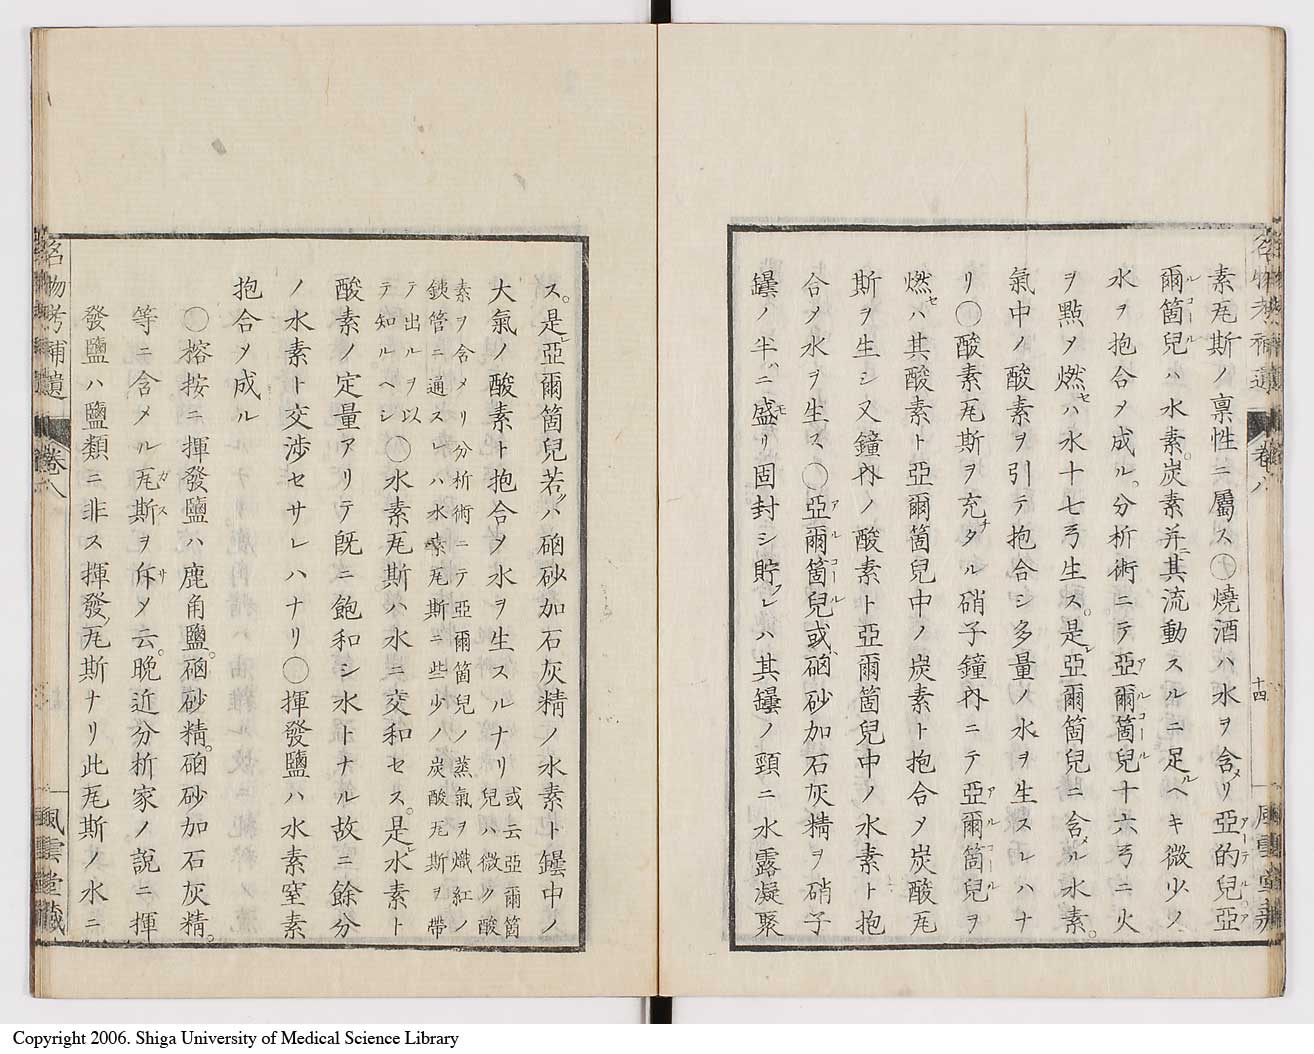 素瓦斯ノ稟性ニ屬ス〇燒酒ハ水ヲ含メリ亞的兒亞
爾箇兒ハ水素炭素并ニ其流動スルニ足ルヘキ微少ノ
水ヲ抱合ヲ成ル分析術ニテ亞爾箇兒十六弓ニ火
ヲ點メ燃セハ水十七弓生ス是レ亞爾箇兒ニ含メル水素
氣中ノ酸素ヲ引テ抱合シ多量ノ水ヲ生スレハナ
リ〇酸素瓦斯ヲ充タル硝子鐘內ニテ亞爾箇兒ヲ
燃セハ其酸素ト亞爾箇兒中ノ炭素ト抱合メ炭酸瓦
斯ヲ生シ又鐘內ノ酸素ト亞爾箇兒中ノ水素ト抱
合メ水ヲ生ス〇亞爾箇兒或ハ硇砂加石灰精ヲ硝子
罎ノ半ハニ盛リ固封シ貯フレハ其罎ノ頸ニ水露凝聚
ス是レ亞爾箇兒若クハ硇砂加石灰精ノ水素ト罎中ノ
大氣ノ酸素ト抱合ヲ水ヲ生スルナリ
或云亞爾箇
兒ハ微少ノ酸
素ヲ含メリ分析術ニテ亞爾箇兒ノ蒸氣ヲ熾紅ノ
銕管ニ通スレハ水素瓦斯ニ些少ノ炭酸瓦斯ヲ帶
テ出ルヲ以
テ知ルヘシ
〇水素瓦斯ハ水ニ交和セス是レ水素ト
酸素ノ定量アリテ旣ニ飽和シ水トナル故ニ餘分
ノ水素ト交渉セサレハナリ〇揮發鹽ハ水素窒素
抱合メ成ル
〇榕按ニ揮發鹽ハ鹿角鹽硇砂精硇砂加石灰精
等ニ含メル瓦斯ヲ斥メ云晩近分析家ノ說ニ揮
發鹽ハ鹽類ニ非ス揮發瓦斯ナリ此瓦斯ノ水ニ
名物考補遺
卷八
十四
風雲堂藏
Copyright 2006. Shiga University of Medical Science Library